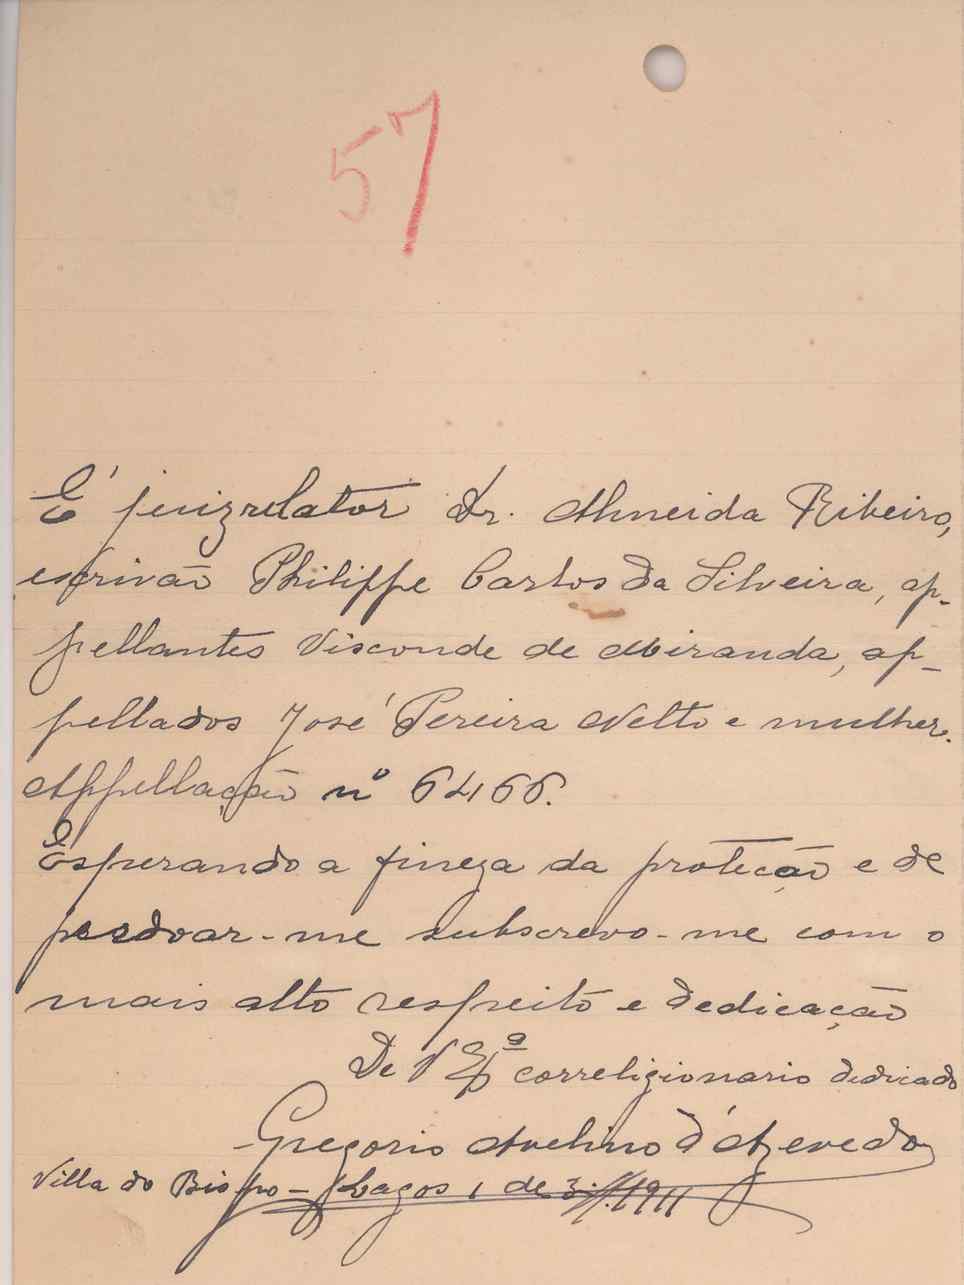 57
É juiz relator Dr. Almeida Ribeiro,
escrivão Philippe Carlos da Silveira, ap-
pellantes Visconde de Miranda, ap-
pellados José Pereira Netto e mulher.
Appellação nº 6466.
Esperando a fineza da proteção e de
perdoar-me subscrevo-me com o
mais alto respeito e dedicação
De V Exª correligionario dedicado
Gregorio Avelino d'Azevedo
Villa do Bispo - Lagos 1 de 1911